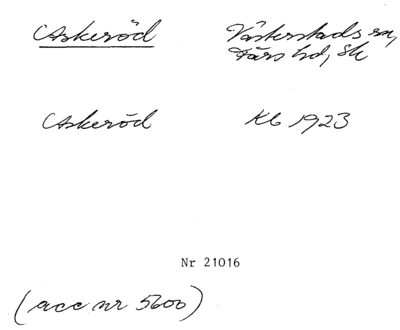 Askeröd Västerstads sn,
Färs hd, Sk
Askeröd Kb 1923
Nr 21016
(acc nr 5600)